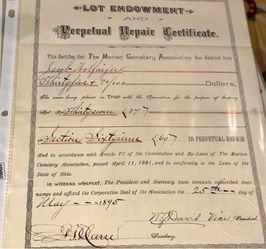 LOT ENDOWMENT
AND
Perpetual Repair Certificate.
This Certifies, That The Marion Cemetery Association Has Received from
Jacob Holfinger
Thirty five & 70/100 Dollars,
The same being placed in TRUST with the Association for the purpose of keeping
Lot No. Thirty seven (37)
Section Sixty nine (69) IN PERPETUAL REPAIR
And in accordance with Article VI of the Constitution and By-Laws of The Marion
Cemetery Association, passed April 11, 1881, and in conformity to the Laws of the
State of Ohio.
In witness whereof, The President and Secretary have hereunto subscribed their
names and affixed the Corporate Seal of the Association the 25th
May 1895
President.
Secretary.